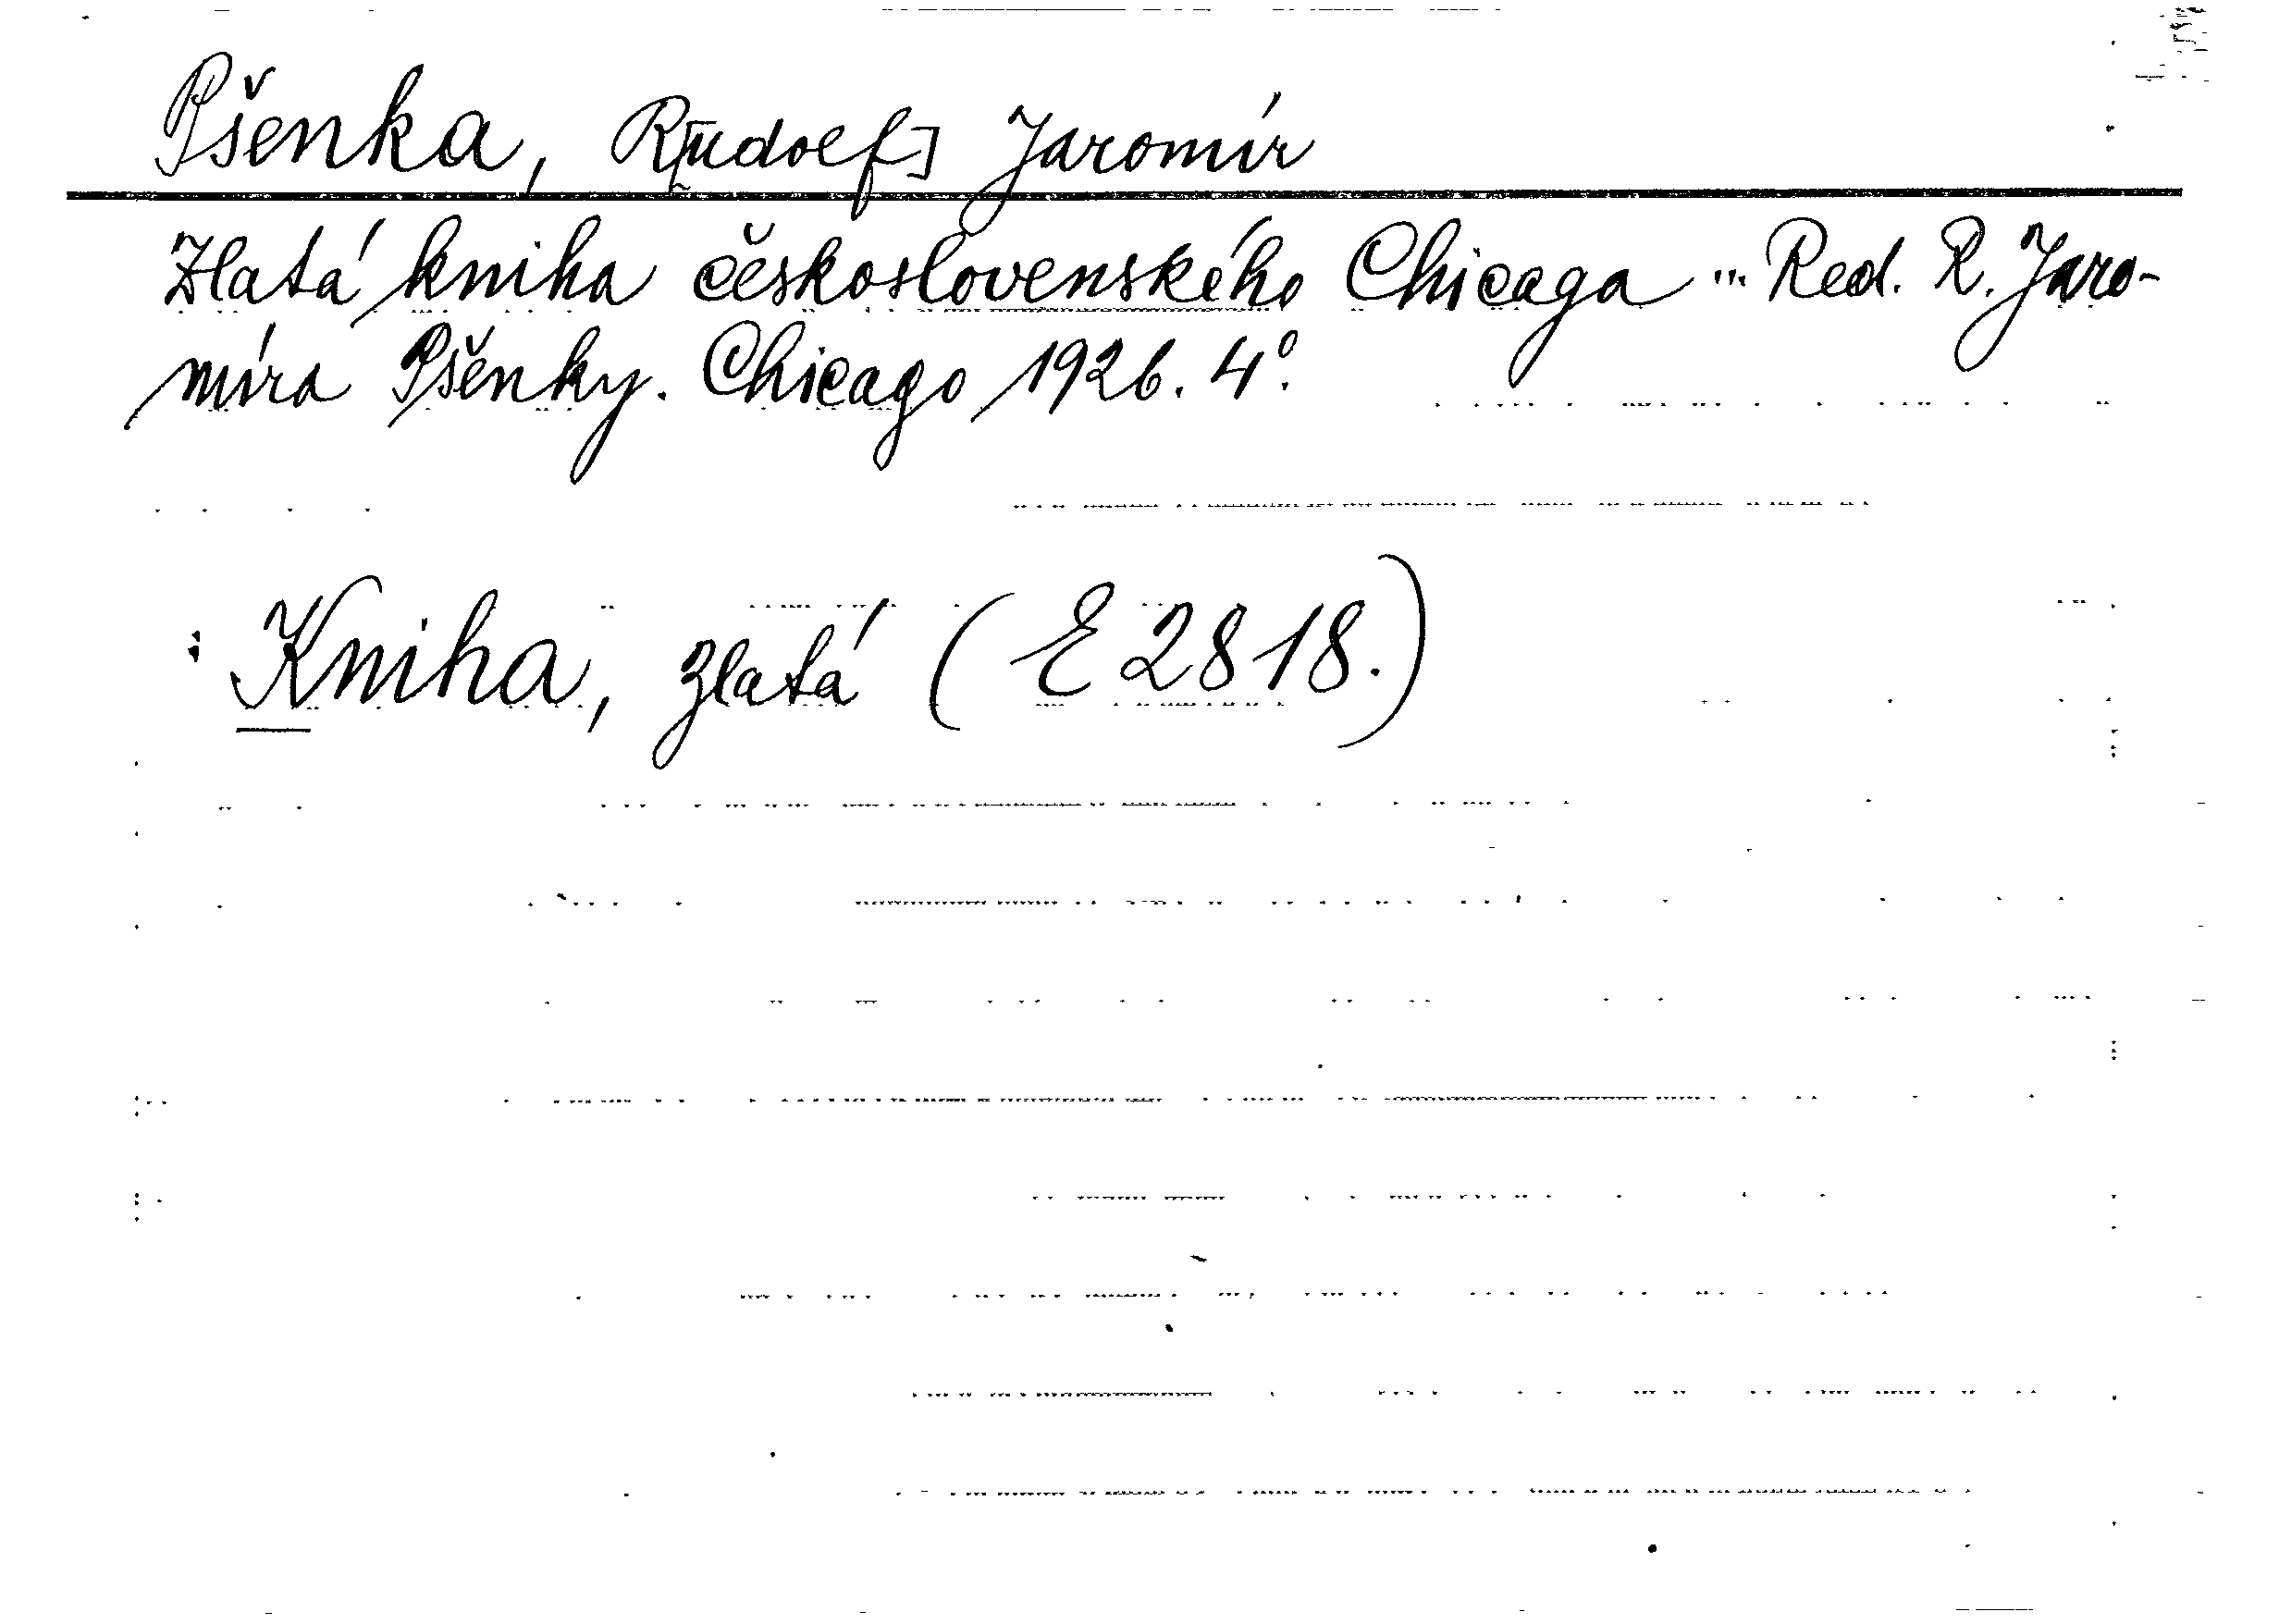 Pšenka, R[udolf] Jaromír
Zlatá kniha československého Chicaga ... Red. R. Jaro-
míra Pšenky. Chicago 1926. 4°.
: Kniha, zlatá (E 2818.)